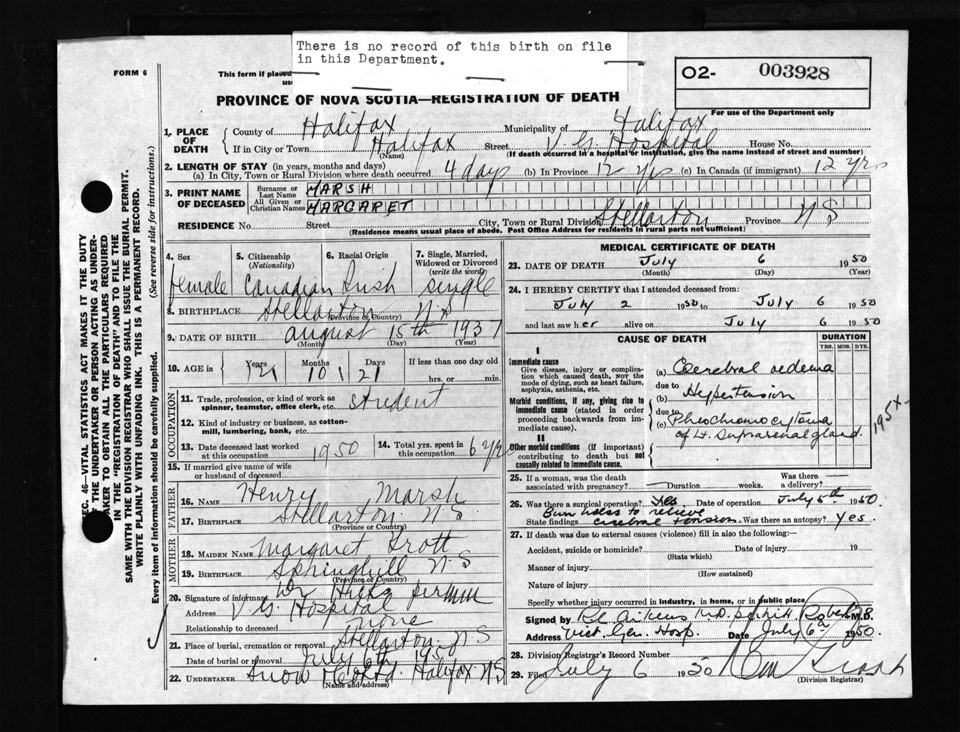 There is no record of this birth on file
in this Department.
FORM 6
This form if placed
O2- 003928
For use of the Department only
PROVINCE OF NOVA SCOTIA—REGISTRATION OF DEATH
1. PLACE OF DEATH { County of Halifax Municipality of Halifax
If in City or Town Halifax (Name) Street V G Hospital House No.
(If death occurred in a hospital or institution, give the name instead of street and number)
2. LENGTH OF STAY (in years, months and days)
(a) In City, Town or Rural Division where death occurred 4 days (b) In Province 12 yrs (c) In Canada (if immigrant) 12 yrs
3. PRINT NAME OF DECEASED { Surname or Last Name MARSH
All Given or Christian Names MARGARET
RESIDENCE No. Street City, Town or Rural Division Stellarton Province N S
(Residence means usual place of abode. Post Office Address for residents in rural parts not sufficient)
4. Sex 5. Citizenship (Nationality) 6. Racial Origin 7. Single, Married, Widowed or Divorced (write the word)
female Canadian Irish single
8. BIRTHPLACE Stellarton N S
(Province or Country)
9. DATE OF BIRTH August 15th 1937
(Month) (Day) (Year)
10. AGE in { Years Months Days If less than one day old
10 21 hrs. or min.
OCCUPATION
11. Trade, profession, or kind of work as spinner, teamster, office clerk, etc. student
12. Kind of industry or business, as cotton-mill, lumbering, bank, etc.
13. Date deceased last worked at this occupation 1950 14. Total yrs. spent in this occupation 6 yrs
15. If married give name of wife or husband of deceased
FATHER
16. NAME Henry Marsh
17. BIRTHPLACE Stellarton N S
(Province or Country)
MOTHER
18. MAIDEN NAME Margaret Trott
19. BIRTHPLACE Springhill N S
(Province or Country)
20. Signature of informant Dr Hicks
Address V G Hospital
Relationship to deceased none
21. Place of burial, cremation or removal Stellarton N S
Date of burial or removal July 6th 1950
22. UNDERTAKER Snow Halifax N S
(Name and address)
MEDICAL CERTIFICATE OF DEATH
23. DATE OF DEATH July 6 1950
(Month) (Day) (Year)
24. I HEREBY CERTIFY that I attended deceased from:
July 2 1950 to July 6 1950
and last saw her alive on July 6 1950
CAUSE OF DEATH DURATION
YRS. MOS. DYS.
I
Immediate cause
Give disease, injury or complication which caused death, NOT the mode of dying, such as heart failure, asphyxia, asthenia, etc.
(a) Cerebral oedema
due to
Morbid conditions, if any, giving rise to immediate cause (stated in order proceeding backwards from immediate cause).
(b) Hypertension
due to
(c) Pheochromocytoma
of Lt. Suprarenal gland.
195x
II
Other morbid conditions (if important) contributing to death but not causally related to immediate cause.
25. If a woman, was the death associated with pregnancy? — Duration weeks. Was there a delivery? —
26. Was there a surgical operation? Yes Date of operation July 5th 1950
Burr holes to relieve
State findings cerebral tension. Was there an autopsy? Yes.
27. If death was due to external causes (violence) fill in also the following:
Accident, suicide or homicide? Date of injury 19
(State which)
Manner of injury
(How sustained)
Nature of injury
Specify whether injury occurred in industry, in home, or in public place
Signed by M.D.
Address Vict. Gen. Hosp. Date July 6th 1950.
28. Division Registrar's Record Number
29. Filed July 6 1950
(Division Registrar)
SEC. 46—VITAL STATISTICS ACT MAKES IT THE DUTY
OF THE UNDERTAKER OR PERSON ACTING AS UNDER-
TAKER TO OBTAIN ALL THE PARTICULARS REQUIRED
IN THE "REGISTRATION OF DEATH" AND TO FILE THE
SAME WITH THE DIVISION REGISTRAR WHO SHALL ISSUE THE BURIAL PERMIT.
WRITE PLAINLY WITH UNFADING INK. THIS IS A PERMANENT RECORD.
Every item of information should be carefully supplied. (See reverse side for instructions.)